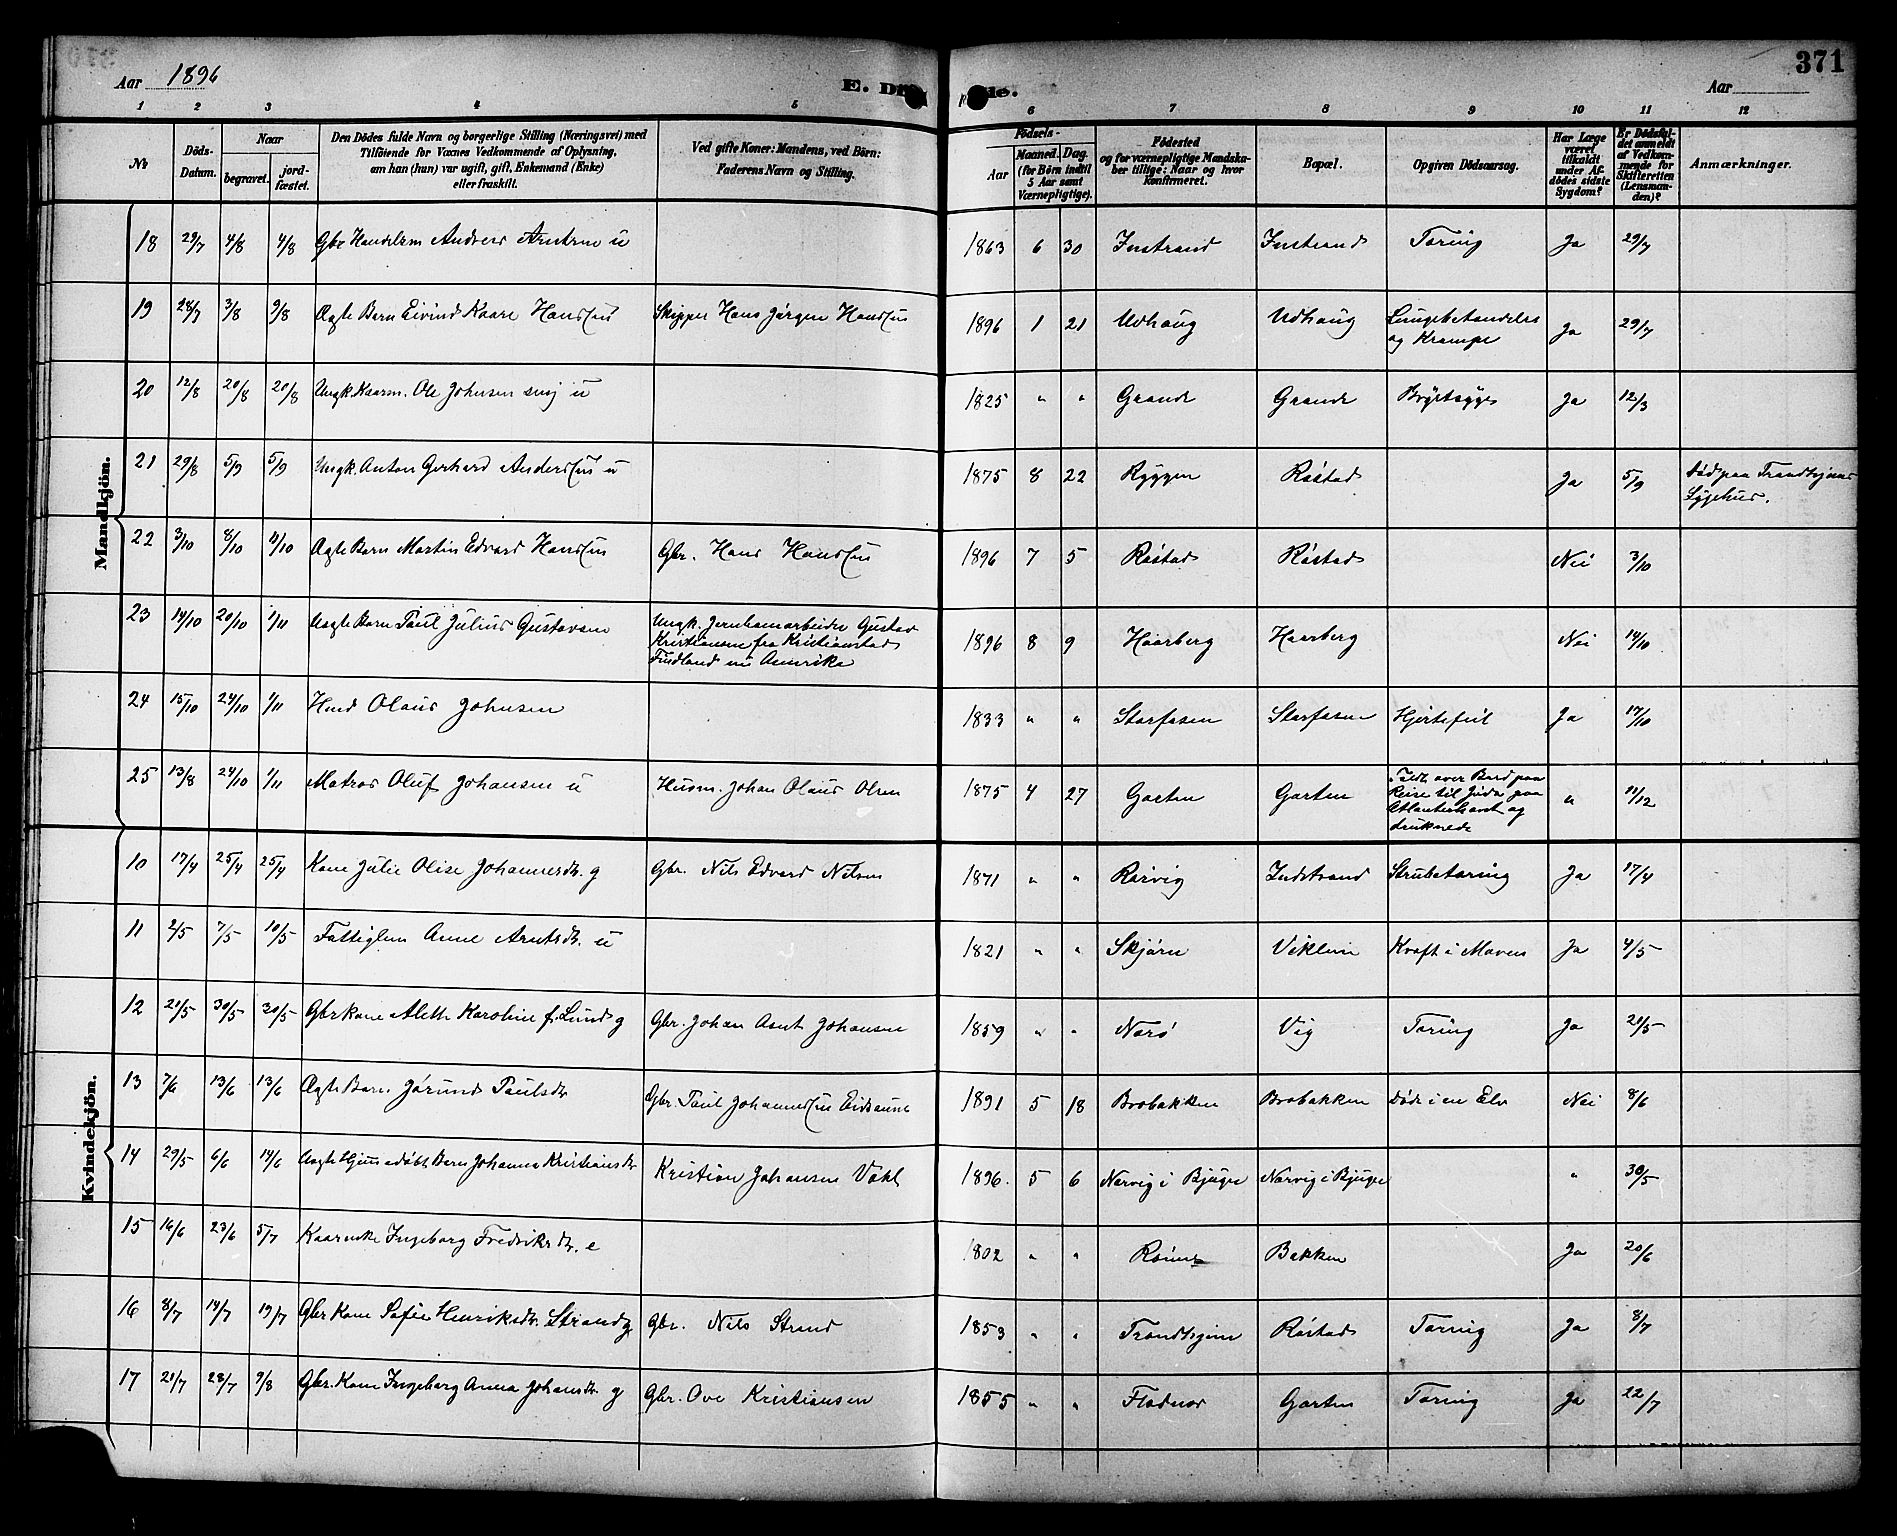 371
Aar 1896
E. Dø de.
Aar
1 2 3 4 5 6 7 8 9 10 11 12
№
Döds-Datum.
Naar
begravet.
jord-fæstet.
Den Dödes fulde Navn og borgerlige Stilling (Næringsvei) med
Tilföiende for Voxnes Vedkommende af Oplysning,
om han (hun) var ugift, gift, Enkemand (Enke)
eller fraskilt.
Ved gifte Koner: Mandens, ved Börn:
Faderens Navn og Stilling.
Födsels-
Aar
Maaned. Dag.
(for Börn indtil
5 Aar samt
Værnepligtige).
Födested
og for værnepligtige Mandska-
ber tillige: Naar og hvor
Konfirmeret.
Bopæl.
Opgiven Dödsaarsag.
Har Læge
været
tilkaldt
under Af-
dödes sidste
Sygdom?
Er Dödsfal-
det anmeldt
af Vedkom-
mende for
Skifteretten
(Lensman-
den)?
Anmærkninger.
Mandkjön.
18 29/7 4/8 4/8 Gbr Handelsm Andreas Arntsen u 1863 6 30 Instrand Instrand Tæring Ja 29/7
19 28/7 3/8 9/8 Ægte Barn Eivind Kaare Hansen Skipper Hans Jørgen Hansen 1896 1 21 Udhaug Udhaug Lungebetændelse
og Krampe Ja 29/7
20 12/8 20/8 20/8 Ungk. Kaarm. Ole Johnsen u 1825 " " Grande Grande Brystsyge Ja 12/8
21 29/8 5/9 5/9 Ungk. Anton Gerhard Andersen u 1875 8 22 Ryggen Røstad Ja 5/9 død paa Trondhjems
Sygehus.
22 3/10 8/10 11/10 Ægte Barn Martin Edvard Hansen Gbr. Hans Hansen 1896 7 5 Røstad Røstad Nei 3/10
23 14/10 20/10 1/11 Uægte Barn Paul Julius Gustavsen Ungk. Jernbanearbeider Gustav
Kristiansen fra Kristianstad
Finland nu Amerika 1896 8 9 Haarberg Haarberg Nei 14/10
24 15/10 24/10 1/11 Olaus Johnsen 1833 " " Storfosen Storfosen Hjertefeil Ja 17/10
25 13/8 24/10 1/11 Matros Oluf Johansen u Husm. Johan Olaus Olsen 1875 4 27 Garten Garten Faldt over Bord paa
Reise til paa
Atlanterhavet og
druknede " 11/12
Kvindekjön.
10 17/4 25/4 25/4 Kone Julie Olise Johannesdr. g Gbr. Nils Edvard Nilsen 1871 " " Rørvig Indstrand Strubetæring Ja 17/4
11 2/5 7/5 10/5 Fattiglem Anne Arntsdr. u 1821 " " Skjørn Viklem Kræft i Maven Ja 4/5
12 21/5 30/5 30/5 Gbrkone Aleth Karoline f. Lund g Gbr. Johan Arnt Johansen 1859 " " Nærø Vig Tæring Ja 20/5
13 7/6 13/6 13/6 Ægte Barn Jørund Paulsdr Gbr. Paul Johannessen Eidsaune 1891 5 18 Brobakken Brobakken Døde i en Elv Nei 8/6
14 29/5 6/6 14/6 Ægte Hjemmedøbt Barn Johanna Kristiansdr Kristian Johansen Vakl 1896. 5 6 Nærvig i Bjugn Nærvig i Bjugn " 30/5
15 16/6 23/6 5/7 Kaarenke Ingeborg Fredriksdr. e 1802 " " Bakken Ja 20/6
16 8/7 14/7 19/7 Gbr Kone Sofie Henriksdr. Strand g Gbr. Nils Strand 1853 " " Trondhjem Røstad Tæring Ja 8/7
17 21/7 28/7 9/8 Gbr. Kone Ingeborg Anna Johansdr. g Gbr. Ove Kristiansen 1855 " " Flødnes Garten Tæring Ja 22/7